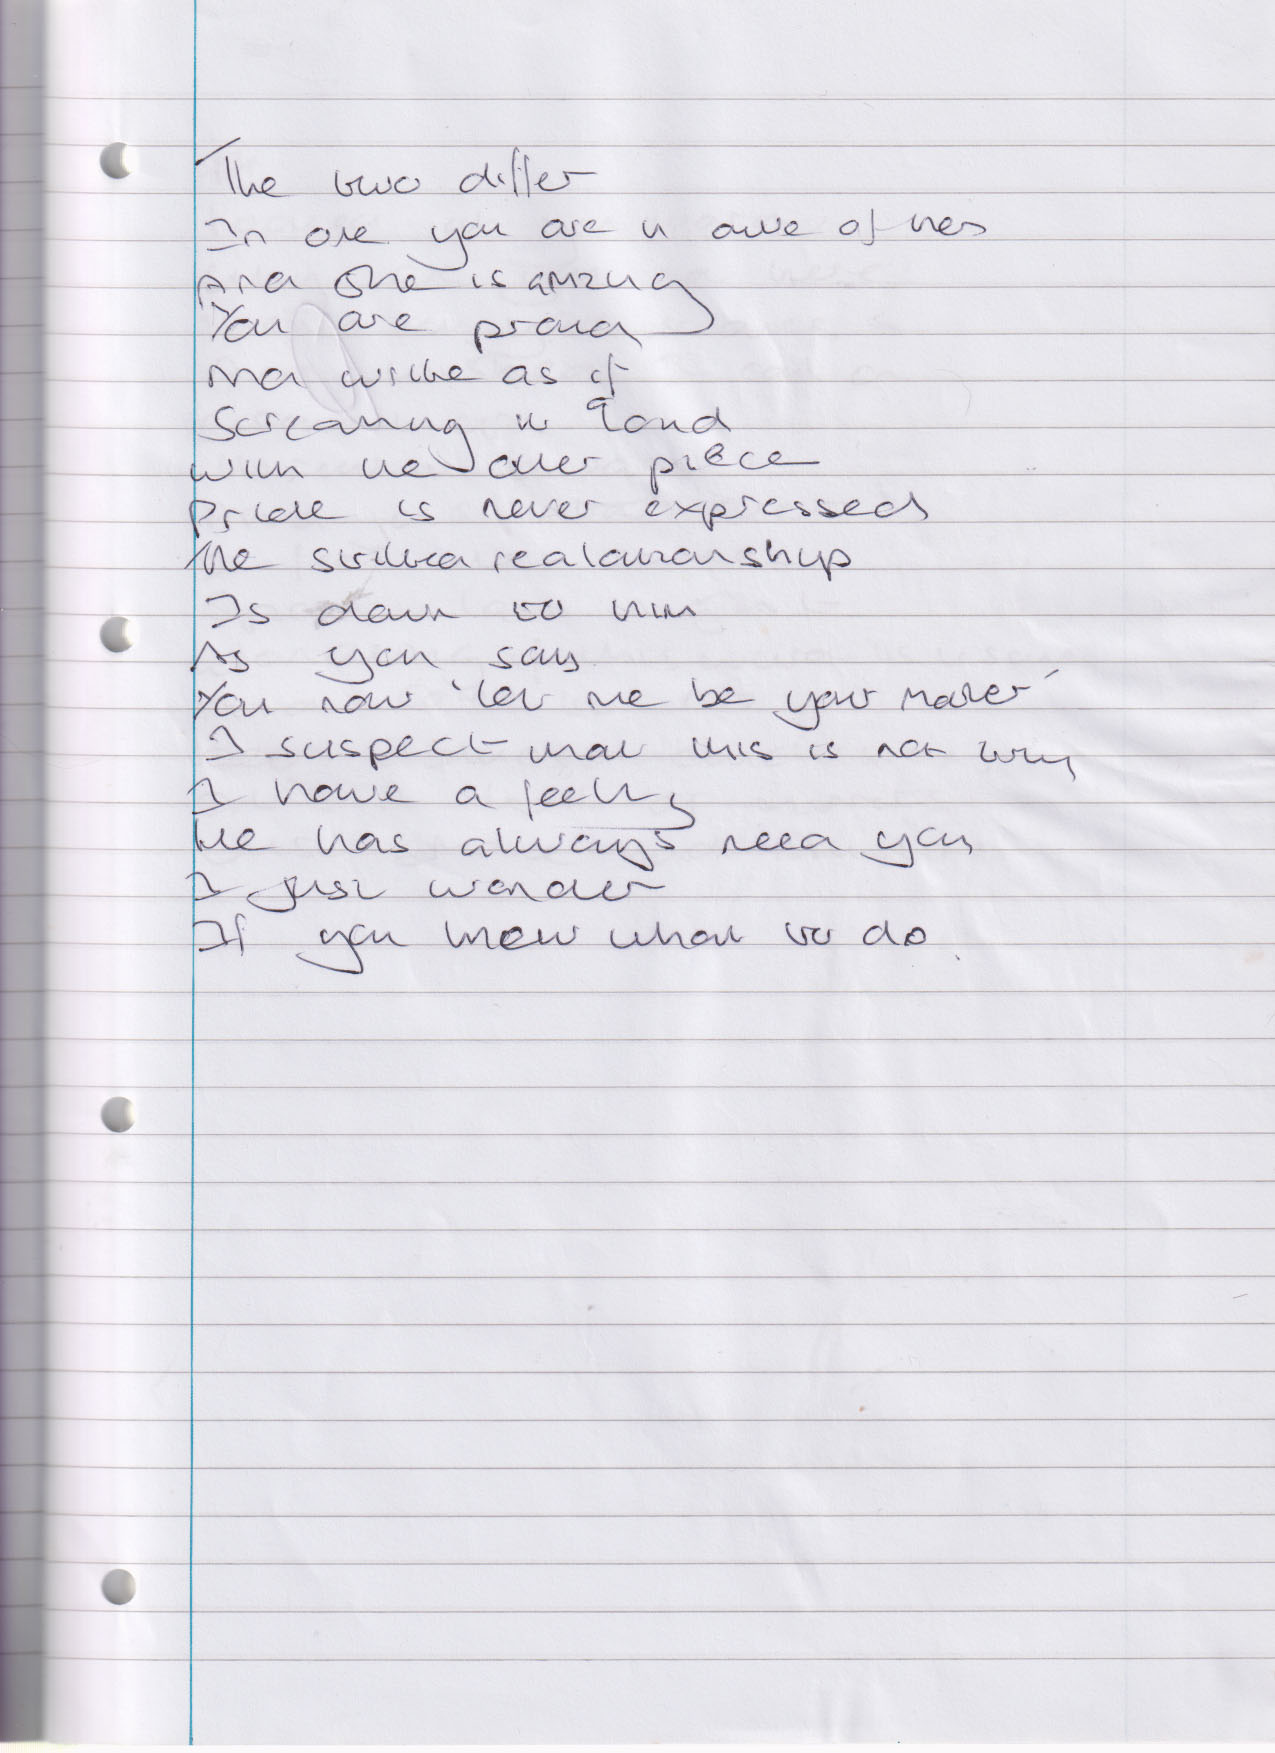 The two differ
In one you are in awe of her
And she is amzing
You are proud
And write as if
Screaming it loud
With the other piece
Pride is never expressed
The stilted realationship
Is down to him
As you say
You now 'let me be your mater'
I suspect that this is not why
I have a feeling
He has always need you
I just wonder
If you knew what to do.